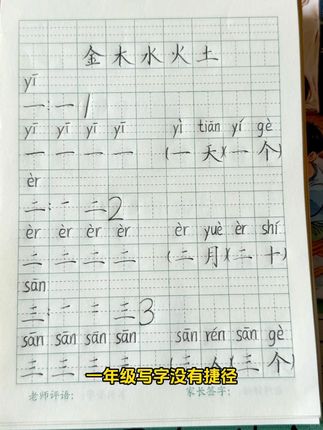 金木水火土
yī
一:一 1
yī yī yī yī yì tiān yí gè
一 一 一 一 (一天)(一个)
èr
二:一 二 2
èr èr èr èr èr yuè èr shí
二 二 二 二 (二月)(二十)
sān
三:一 二 三 3
sān sān sān sān sān rén sān gè
三 三 三 三 (三人)(三个)
一年级写字没有捷径
老师评语: 家长签字: